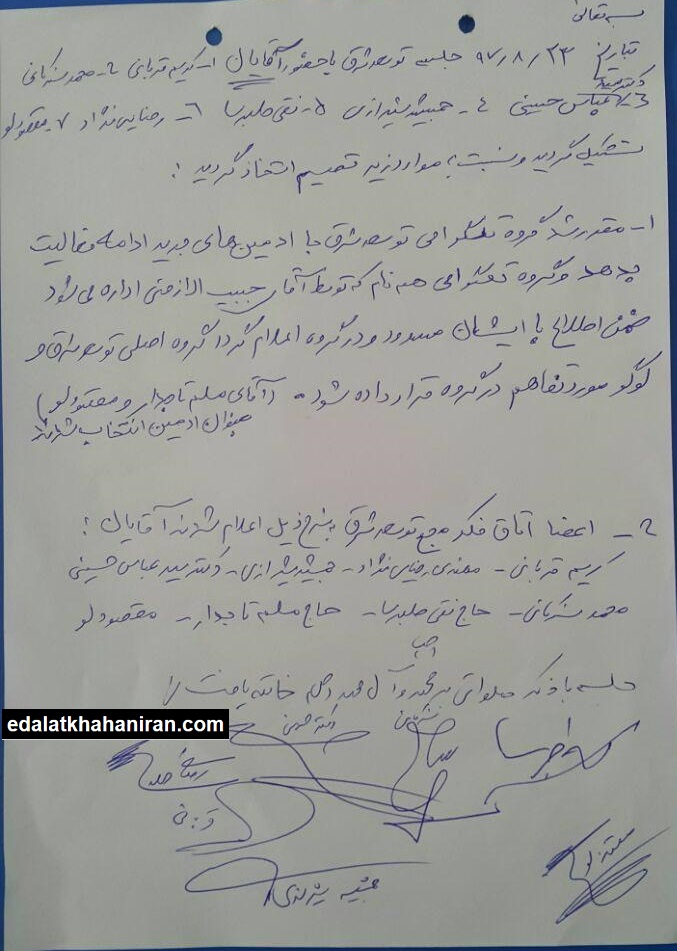 بسمه تعالی
بتاریخ ۹۷/۸/۲۳ جلسه توسعه شرق با حضور آقایان ۱- کریم قربانی ۲- محمد شرکائی
۳- دکتر سید عباس حسینی ۴- جمشید شیرازی ۵- نقی جلیدسا ۶- رضایی نژاد ۷- مقصودلو
تشکیل گردید و نسبت به موارد زیر تصمیم اتخاذ گردید :
۱- مقرر شد گروه تلگرامی توسعه شرق با ادمین های جدید ادامه فعالیت
بدهد و گروه تلگرامی هم نام که توسط آقای حبیب الله اراضی اداره می شود
ضمن اطلاع با ایشان مسدود و در گروه اعلام گردد گروه اصلی توسعه شرق و
لوگو مورد تفاهم در گروه قرار داده شود . (آقای مسلم تاجدار و مقصودلو)
بعنوان ادمین انتخاب شدند
۲- اعضا اتاق فکر مجمع توسعه شرق بشرح ذیل اعلام شدند آقایان :
کریم قربانی - مهندس رضایی نژاد - جمشید شیرازی - دکتر سید عباس حسینی
محمد شرکائی - حاج نقی - حاج مسلم تاجدار - مقصودلو
جلسه با ذکر صلواتی بر محمد و آل محمد خاتمه یافت
دکتر حسینی
قربانی
جمشید شیرازی
مقصودلو
edalatkhahaniran.com